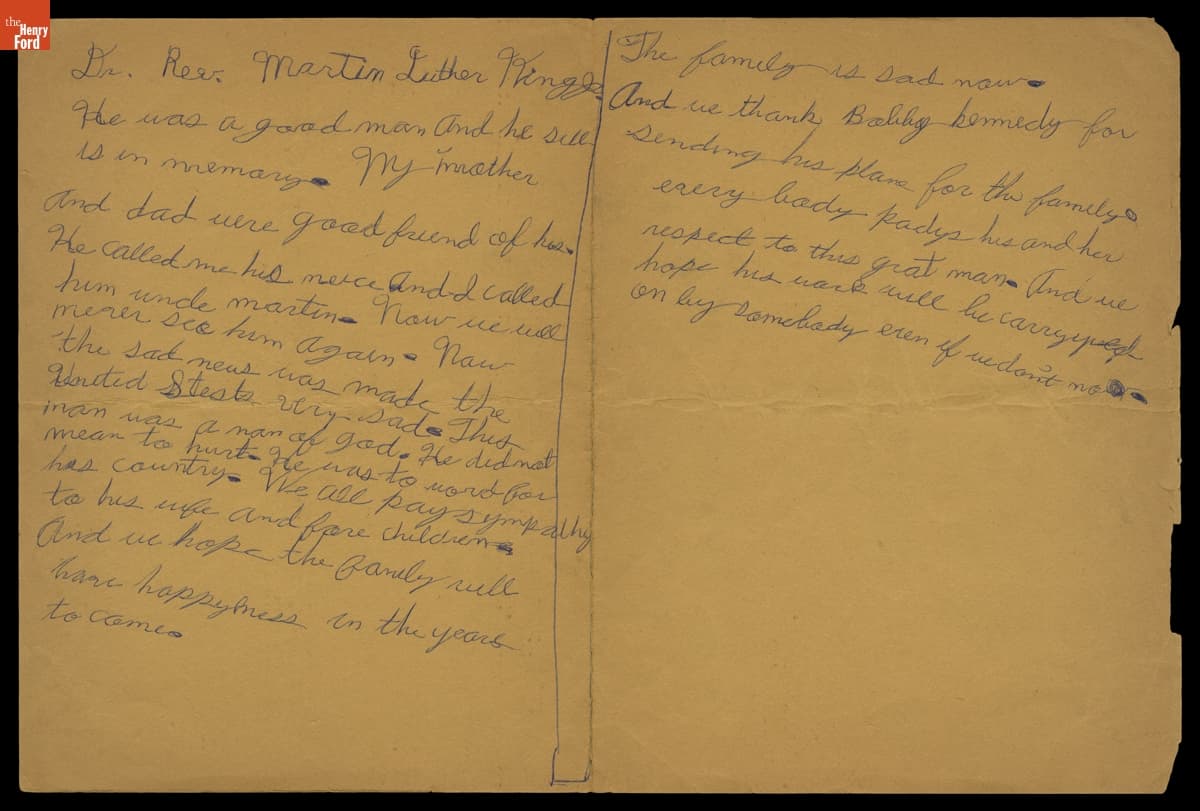 the
Henry
Ford
Dr. Rev. Martin Luther King Jr.
He was a good man And he still
is in memory. My mother
And dad were good friend of his.
He called me his neice And I called
him uncle martin. Now we will
never see him again. Now
the sad news was made the
United Stests very sad. This
man was a man of god. He did not
mean to hurt. He was to word for
his country. We all pay sympathy
to his wife and fore children.
And we hope the family will
have happyness in the years
to come.
The family is sad now.
And we thank Bobby kennedy for
sending his plane for the family.
every body padys his and her
respect to this grat man. And we
hope his work will be carry
on by somebody even if we don't now.